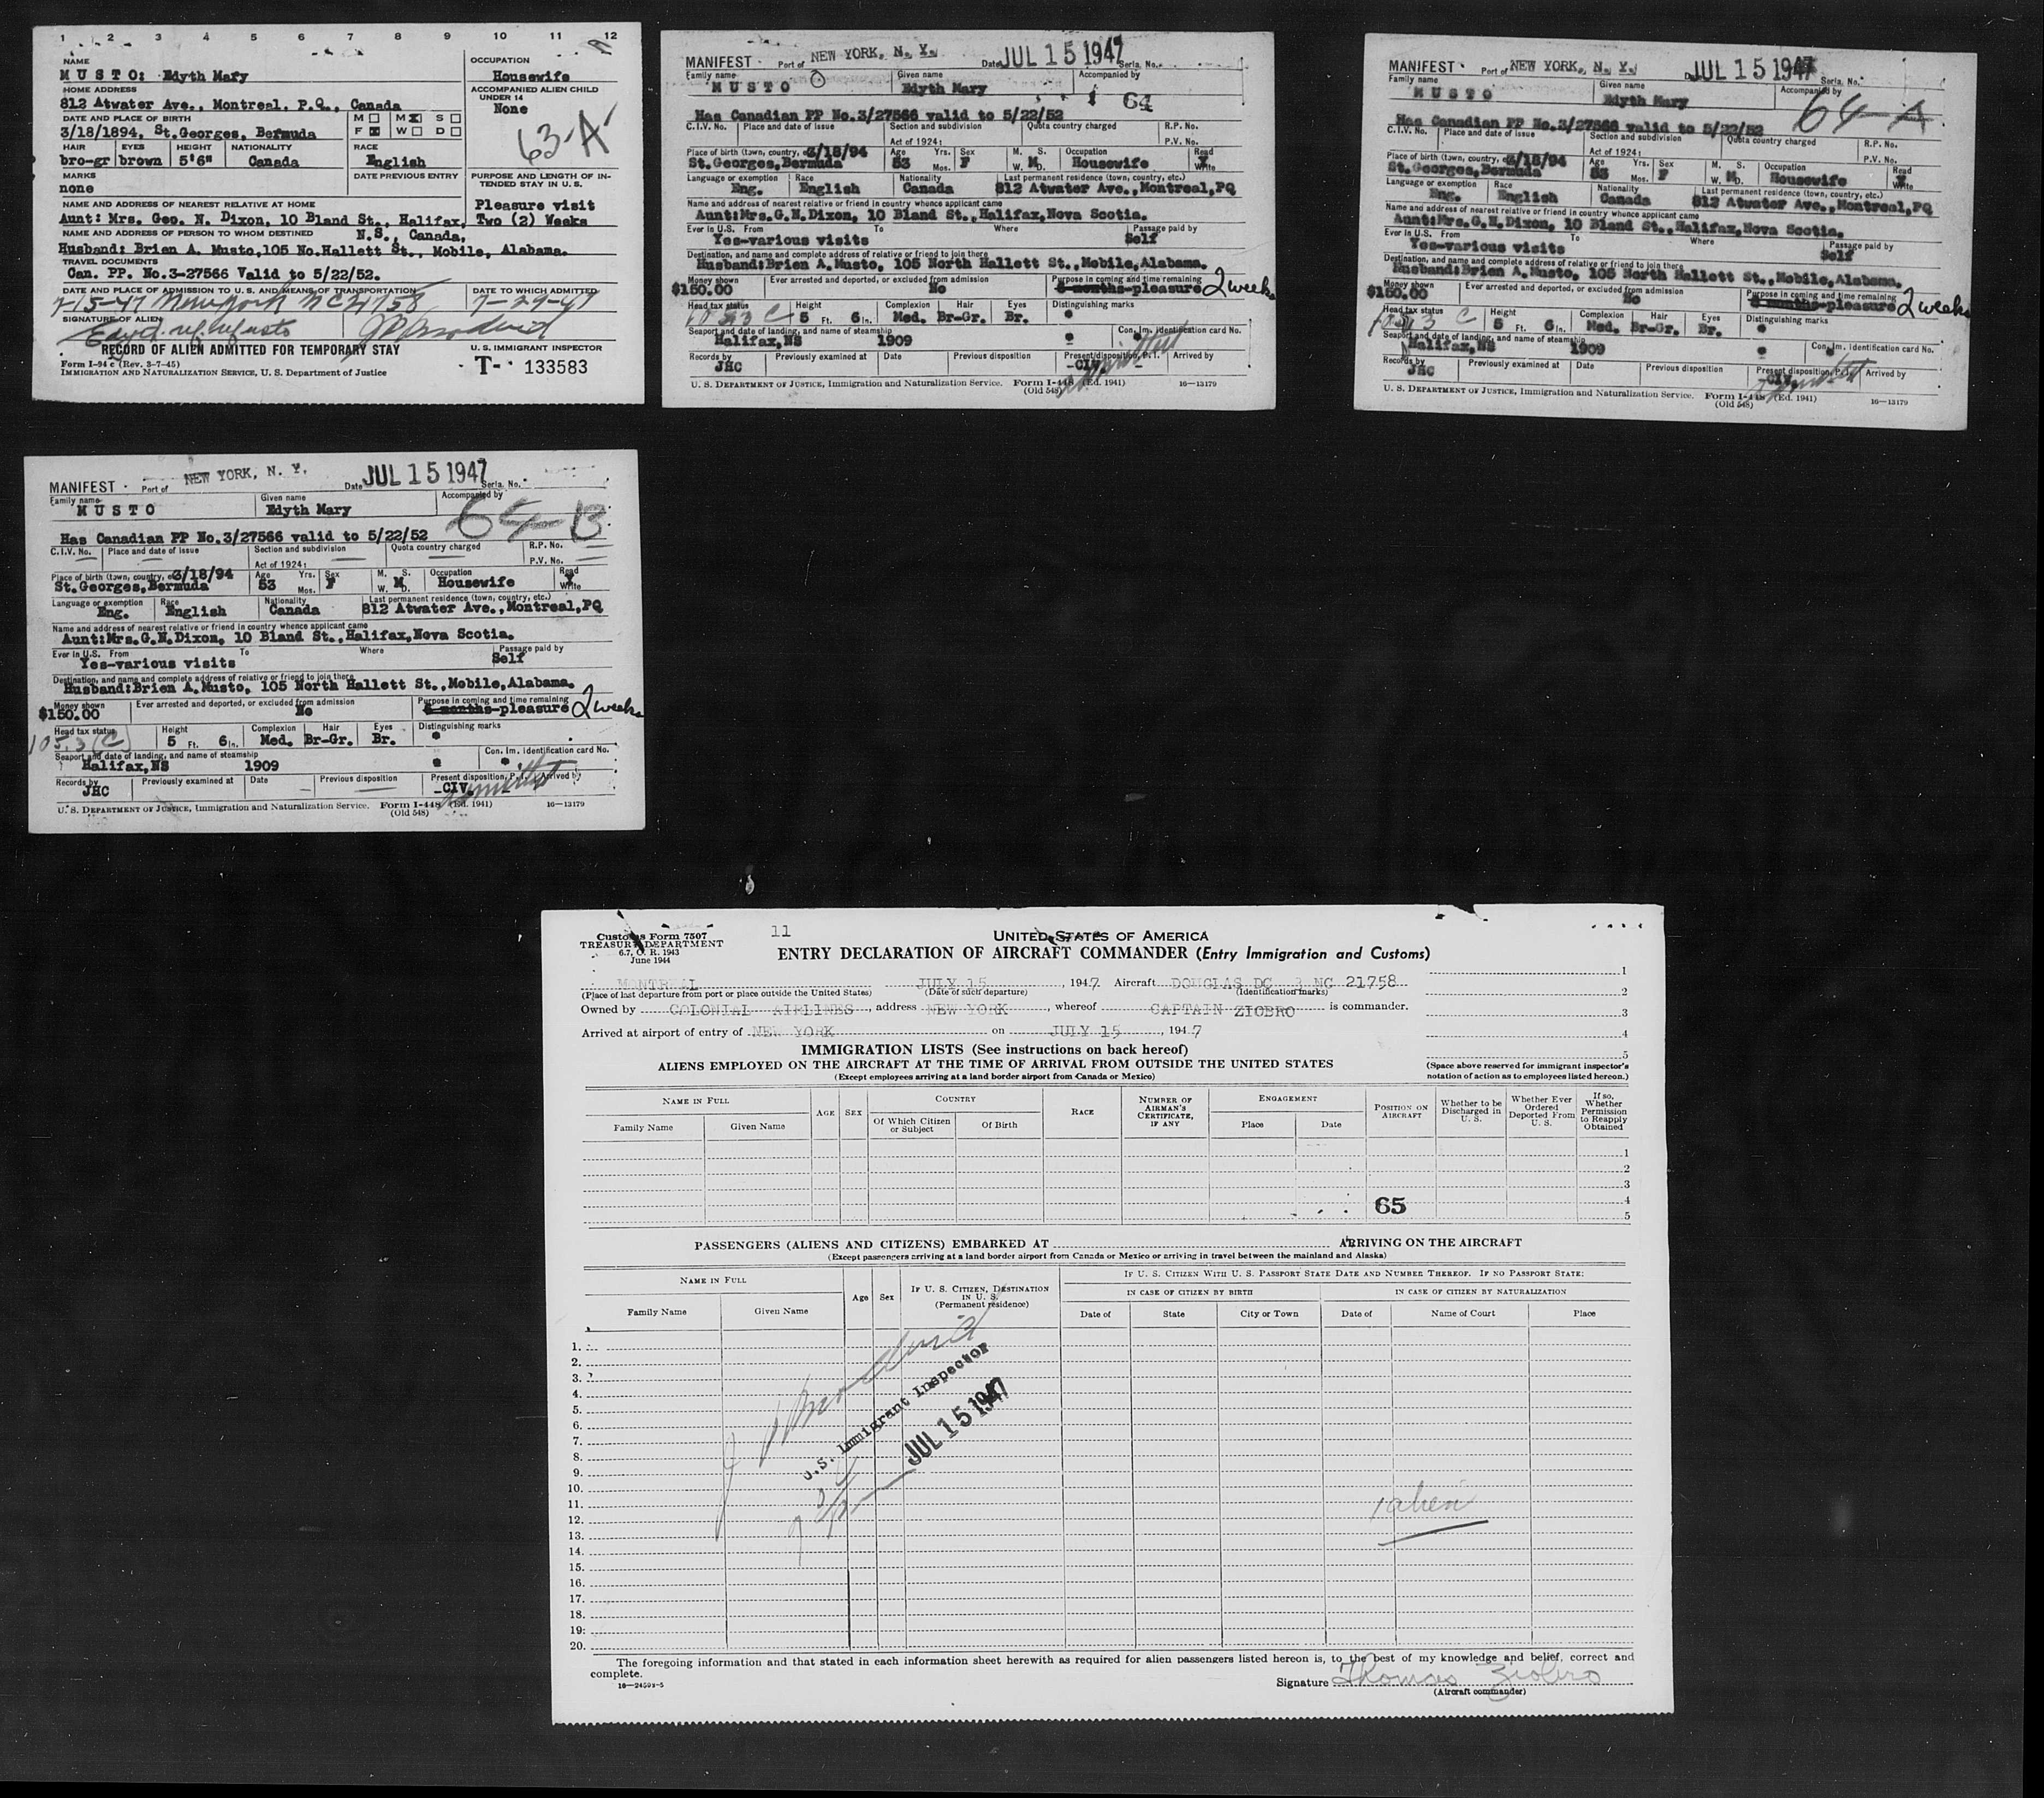 1 2 3 4 5 6 7 8 9 10 11 12
NAME OCCUPATION
MUSTO: Edyth Mary Housewife
HOME ADDRESS ACCOMPANIED ALIEN CHILD UNDER 14
812 Atwater Ave., Montreal. P.Q., Canada None
DATE AND PLACE OF BIRTH M M S
3/18/1894, St.Georges, Bermuda F W D 63-A
HAIR EYES HEIGHT NATIONALITY RACE
bro-gr brown 5'6" Canada English
MARKS DATE PREVIOUS ENTRY PURPOSE AND LENGTH OF INTENDED STAY IN U.S.
none
NAME AND ADDRESS OF NEAREST RELATIVE AT HOME Pleasure visit
Aunt: Mrs. Geo. N. Dixon, 10 Bland St., Halifax, Two (2) Weeks
NAME AND ADDRESS OF PERSON TO WHOM DESTINED N.S., Canada,
Husband: Brien A. Musto,105 No.Hallett St., Mobile, Alabama.
TRAVEL DOCUMENTS
Can. PP. No.3-27566 Valid to 5/22/52.
DATE AND PLACE OF ADMISSION TO U. S. AND MEANS OF TRANSPORTATION DATE TO WHICH ADMITTED
7-15-47 New York NC 21758 7-29-47
SIGNATURE OF ALIEN
Edyth M. Musto
RECORD OF ALIEN ADMITTED FOR TEMPORARY STAY U. S. IMMIGRANT INSPECTOR
Form I-94 c (Rev. 3-7-45)
IMMIGRATION AND NATURALIZATION SERVICE, U. S. Department of Justice T- 133583
MANIFEST Port of NEW YORK, N. Y. Date JUL 15 1947 Serial No.
Family name Given name Accompanied by
MUSTO Edyth Mary 64
Has Canadian PP No.3/27566 valid to 5/22/52
C.I.V. No. Place and date of issue Section and subdivision Quota country charged R.P. No.
Act of 1924: P.V. No.
Place of birth (town, country, 3/18/94 Age Yrs. Sex M. S. Occupation Read
St.Georges,Bermuda 53 Mos. F W. M D. Housewife Y Write
Language or exemption Race Nationality Last permanent residence (town, country, etc.)
Eng. English Canada 812 Atwater Ave.,Montreal,PQ
Name and address of nearest relative or friend in country whence applicant came
Aunt:Mrs.G.N.Dixon, 10 Bland St.,Halifax,Nova Scotia.
Ever in U.S. From To Where Passage paid by
Yes-various visits Self
Destination, and name and complete address of relative or friend to join there
Husband:Brien A.Musto, 105 North Hallett St.,Mobile,Alabama.
Money shown Ever arrested and deported, or excluded from admission Purpose in coming and time remaining
$150.00 No 6 months-pleasure 2 weeks
Head tax status Height Complexion Hair Eyes Distinguishing marks
1053 C 5 Ft. 6 In. Med. Br-Gr. Br.
Seaport and date of landing, and name of steamship Con. Im. identification card No.
Halifax,NS 1909
Records by Previously examined at Date Previous disposition Present disposition, P. I. Arrived by
JHC CIV.
U. S. DEPARTMENT OF JUSTICE, Immigration and Naturalization Service. Form I-448 (Ed. 1941) 16-13179
(Old 548)
MANIFEST Port of NEW YORK, N. Y. Date JUL 15 1947 Serial No.
Family name Given name Accompanied by
MUSTO Edyth Mary 64-A
Has Canadian PP No.3/27566 valid to 5/22/52
C.I.V. No. Place and date of issue Section and subdivision Quota country charged R.P. No.
Act of 1924: P.V. No.
Place of birth (town, country, 3/18/94 Age Yrs. Sex M. S. Occupation Read
St.Georges,Bermuda 53 Mos. F W. M D. Housewife Y Write
Language or exemption Race Nationality Last permanent residence (town, country, etc.)
Eng. English Canada 812 Atwater Ave.,Montreal,PQ
Name and address of nearest relative or friend in country whence applicant came
Aunt:Mrs.G.N.Dixon, 10 Bland St.,Halifax,Nova Scotia.
Ever in U.S. From To Where Passage paid by
Yes-various visits Self
Destination, and name and complete address of relative or friend to join there
Husband:Brien A.Musto, 105 North Hallett St.,Mobile,Alabama.
Money shown Ever arrested and deported, or excluded from admission Purpose in coming and time remaining
$150.00 No 6 months-pleasure 2 weeks
Head tax status Height Complexion Hair Eyes Distinguishing marks
1053 C 5 Ft. 6 In. Med. Br-Gr. Br.
Seaport and date of landing, and name of steamship Con. Im. identification card No.
Halifax,NS 1909
Records by Previously examined at Date Previous disposition Present disposition, P. I. Arrived by
JHC CIV.
U. S. DEPARTMENT OF JUSTICE, Immigration and Naturalization Service. Form I-448 (Ed. 1941) 16-13179
(Old 548)
MANIFEST Port of NEW YORK, N. Y. Date JUL 15 1947 Serial No.
Family name Given name Accompanied by
MUSTO Edyth Mary 64-B
Has Canadian PP No.3/27566 valid to 5/22/52
C.I.V. No. Place and date of issue Section and subdivision Quota country charged R.P. No.
Act of 1924: P.V. No.
Place of birth (town, country, 3/18/94 Age Yrs. Sex M. S. Occupation Read
St.Georges,Bermuda 53 Mos. F W. M D. Housewife Y Write
Language or exemption Race Nationality Last permanent residence (town, country, etc.)
Eng. English Canada 812 Atwater Ave.,Montreal,PQ
Name and address of nearest relative or friend in country whence applicant came
Aunt:Mrs.G.N.Dixon, 10 Bland St.,Halifax,Nova Scotia.
Ever in U.S. From To Where Passage paid by
Yes-various visits Self
Destination, and name and complete address of relative or friend to join there
Husband:Brien A.Musto, 105 North Hallett St.,Mobile,Alabama.
Money shown Ever arrested and deported, or excluded from admission Purpose in coming and time remaining
$150.00 No 6 months-pleasure 2 weeks
Head tax status Height Complexion Hair Eyes Distinguishing marks
1053 (C) 5 Ft. 6 In. Med. Br-Gr. Br.
Seaport and date of landing, and name of steamship Con. Im. identification card No.
Halifax,NS 1909
Records by Previously examined at Date Previous disposition Present disposition, P. I. Arrived by
JHC CIV.
U. S. DEPARTMENT OF JUSTICE, Immigration and Naturalization Service. Form I-448 (Ed. 1941) 16-13179
(Old 548)
Customs Form 7507 11 UNITED STATES OF AMERICA
TREASURY DEPARTMENT
6.7, C. R. 1943
June 1944
ENTRY DECLARATION OF AIRCRAFT COMMANDER (Entry Immigration and Customs)
MONTREAL JULY 15, 1947 Aircraft DOUGLAS DC 3 NC 21758
(Place of last departure from port or place outside the United States) (Date of such departure) (Identification marks)
Owned by COLONIAL AIRLINES, address NEW YORK, whereof CAPTAIN ZIOBRO is commander.
Arrived at airport of entry of NEW YORK on JULY 15, 1947
1
2
3
4
5
IMMIGRATION LISTS (See instructions on back hereof)
ALIENS EMPLOYED ON THE AIRCRAFT AT THE TIME OF ARRIVAL FROM OUTSIDE THE UNITED STATES
(Except employees arriving at a land border airport from Canada or Mexico)
(Space above reserved for immigrant inspector's notation of action as to employees listed hereon.)
NAME IN FULL AGE SEX COUNTRY RACE NUMBER OF AIRMAN'S CERTIFICATE, IF ANY ENGAGEMENT POSITION ON AIRCRAFT Whether to be Discharged in U. S. Whether Ever Ordered Deported From U. S. If so, Whether Permission to Reapply Obtained
Family Name Given Name Of Which Citizen or Subject Of Birth Place Date
1
2
3
4
5
65
PASSENGERS (ALIENS AND CITIZENS) EMBARKED AT ARRIVING ON THE AIRCRAFT
(Except passengers arriving at a land border airport from Canada or Mexico or arriving in travel between the mainland and Alaska)
NAME IN FULL Age Sex IF U. S. CITIZEN, DESTINATION IN U. S. (Permanent residence) IF U. S. CITIZEN WITH U. S. PASSPORT STATE DATE AND NUMBER THEREOF. IF NO PASSPORT STATE:
IN CASE OF CITIZEN BY BIRTH IN CASE OF CITIZEN BY NATURALIZATION
Family Name Given Name Date of State City or Town Date of Name of Court Place
1.
2.
3.
4.
5.
6.
7.
8.
9.
10.
11.
12.
13.
14.
15.
16.
17.
18.
19.
20.
U.S. Immigrant Inspector
JUL 15 1947
1 alien
The foregoing information and that stated in each information sheet herewith as required for alien passengers listed hereon is, to the best of my knowledge and belief, correct and
complete.
16-24593-5
Signature Thomas Ziobro
(Aircraft commander)